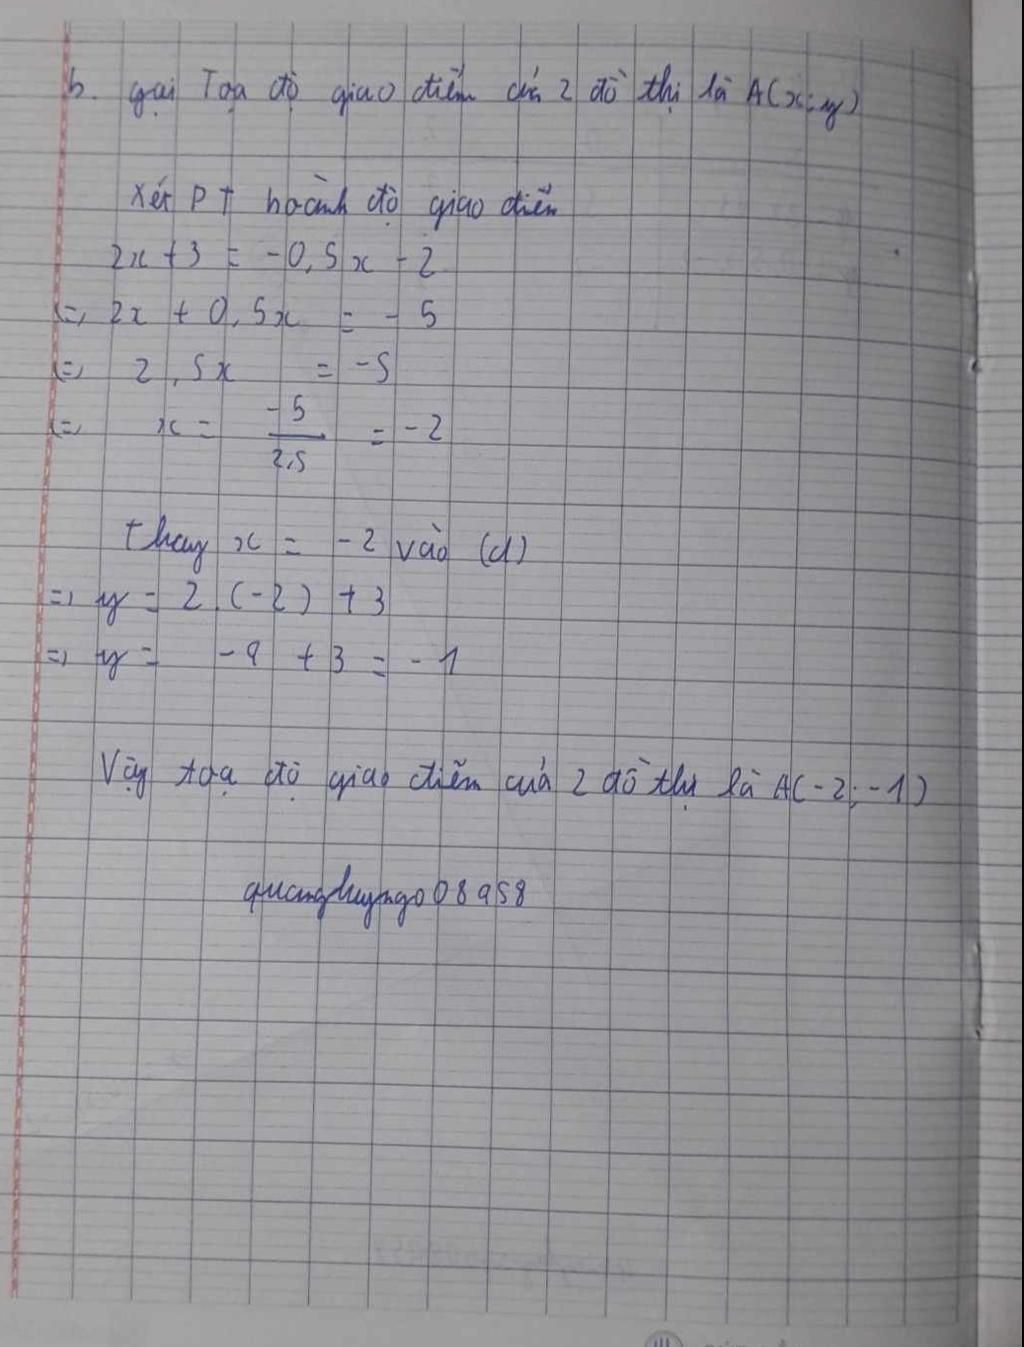 b. gọi Toạ độ giao điểm của 2 đồ thị là A(x;y)
Xét PT hoành độ giao điểm
2x + 3 = -0,5x - 2
<=> 2x + 0,5x = - 5
<=> 2,5x = -5
<=> x = -5/2,5 = -2
thay x = -2 vào (d)
=> y = 2.(-2) + 3
=> y = -4 + 3 = -1
Vậy toạ độ giao điểm của 2 đồ thị là A(-2;-1)
quanghuyngo08958